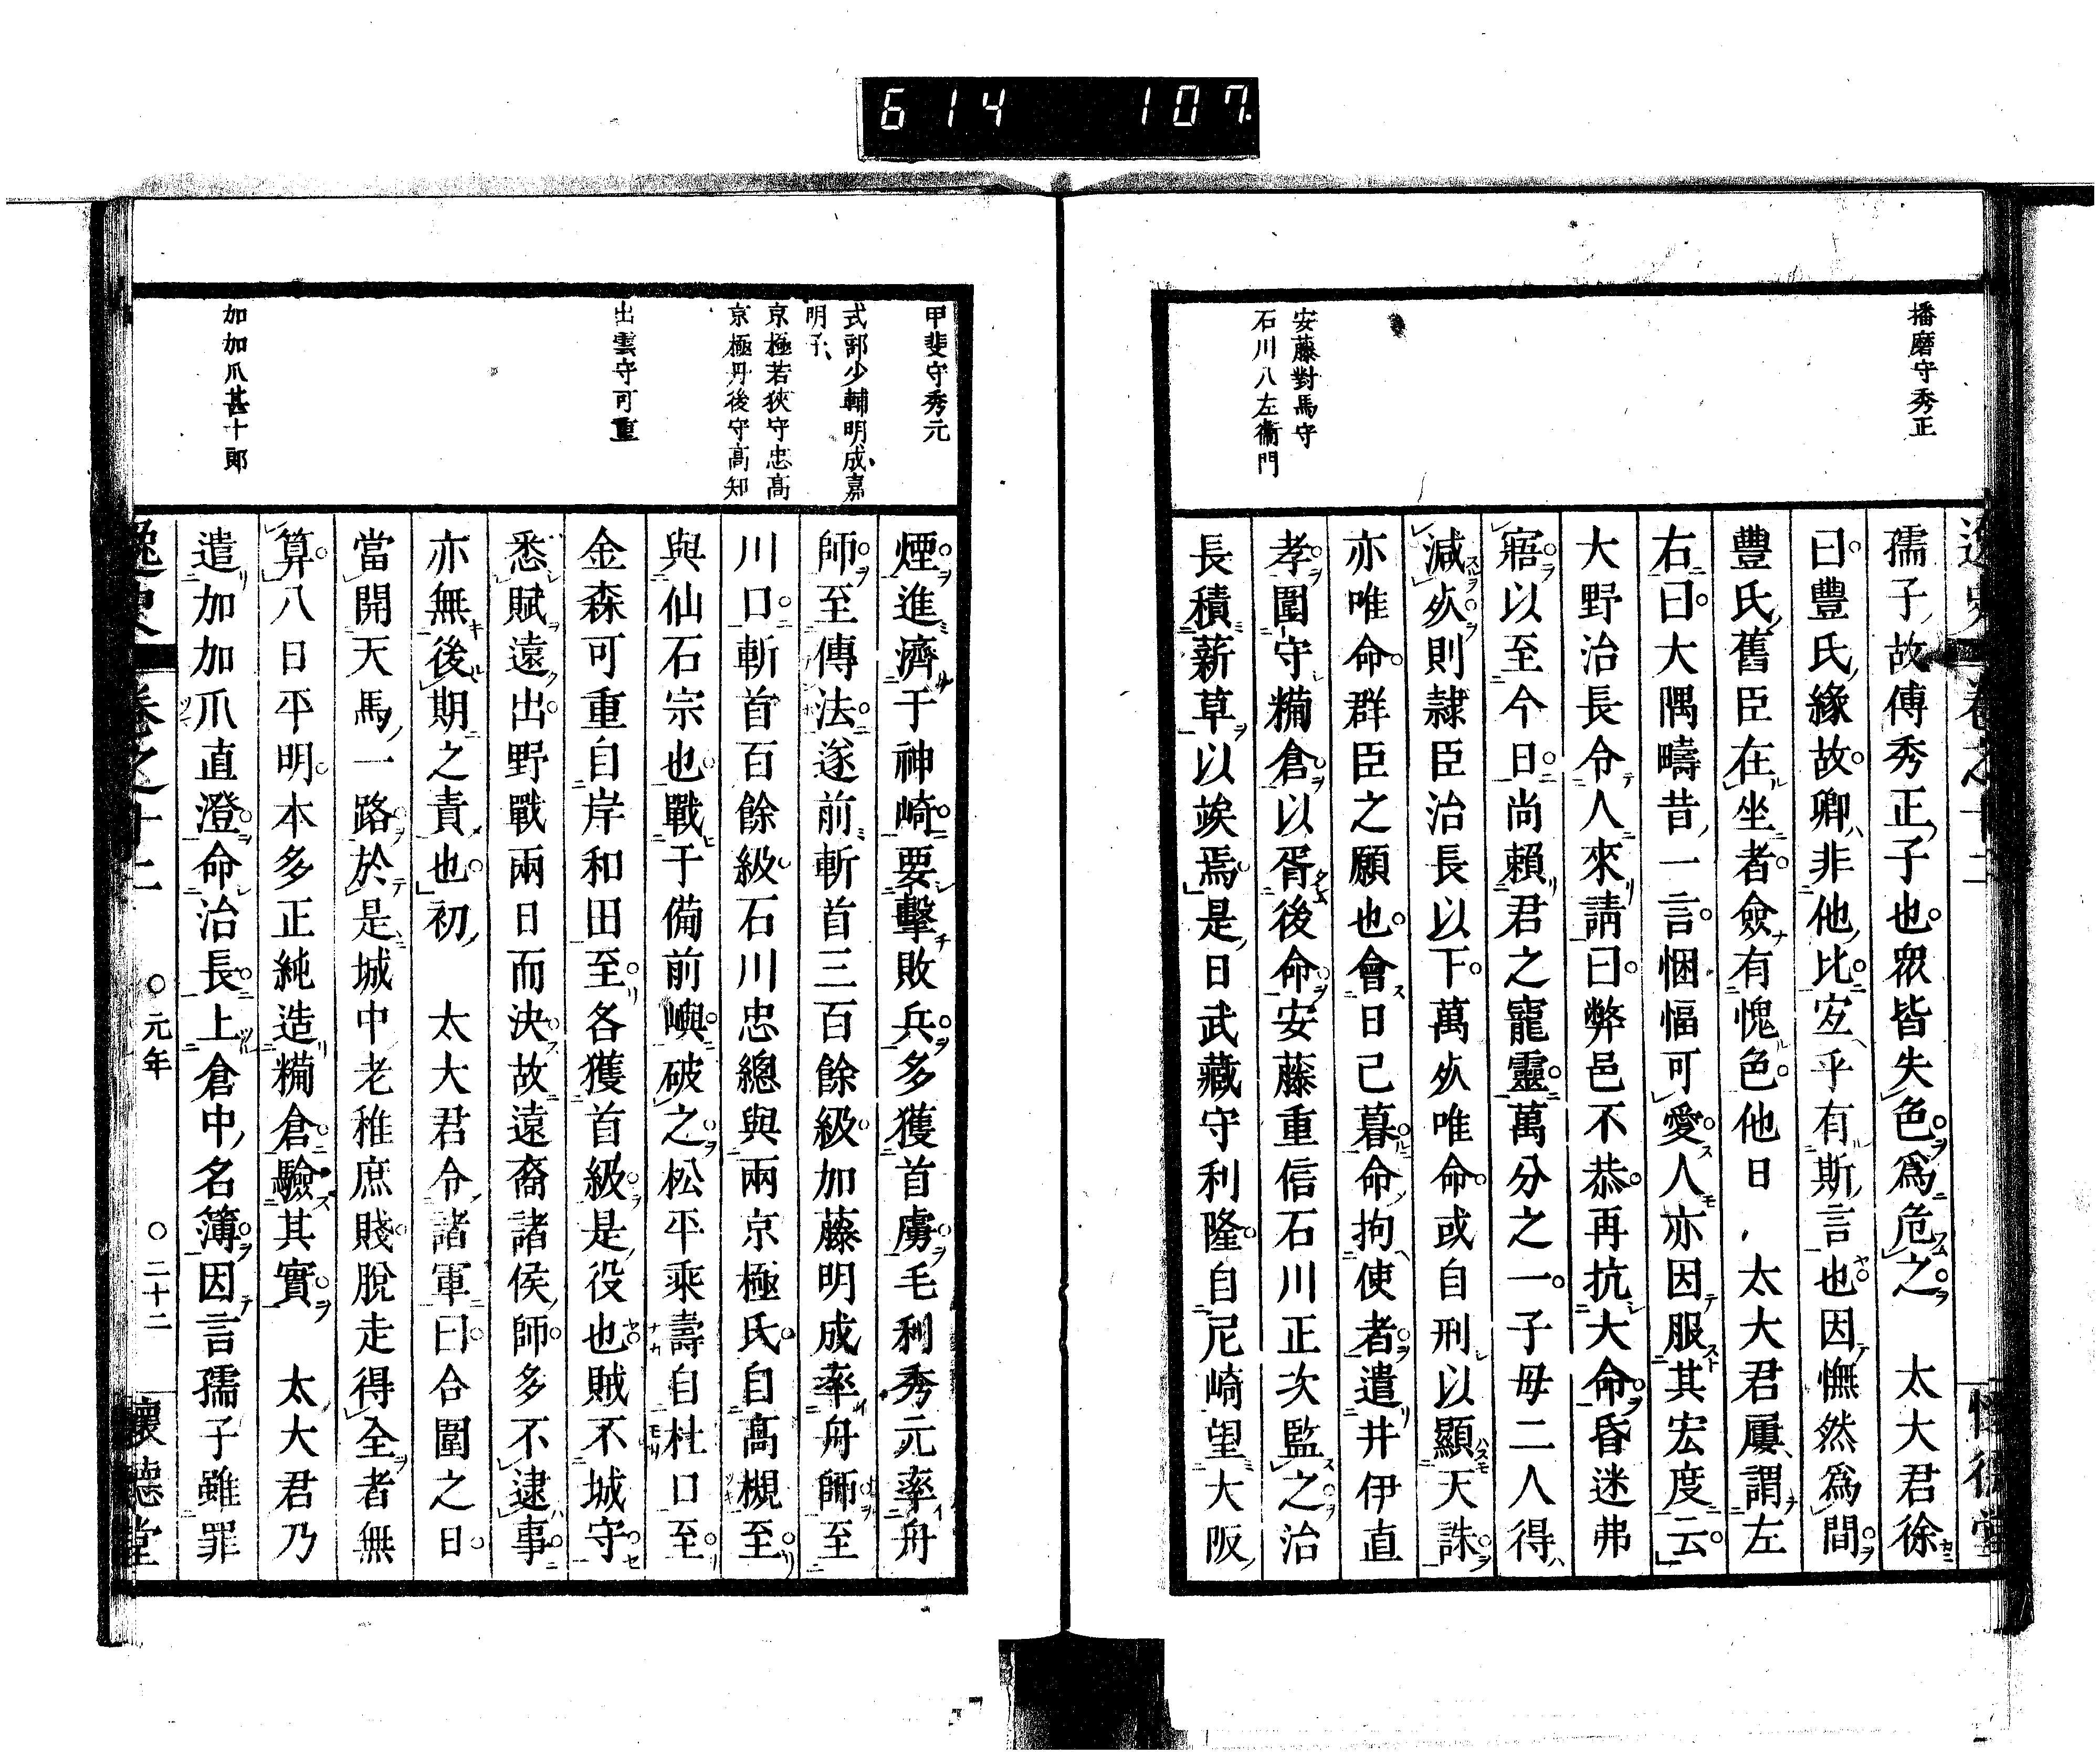 6 1 4 1 0 7.
播磨守秀正
安藤對馬守
石川八左衞門
孺子故傅秀正子也衆皆失色爲危之　太大君徐
曰豐氏緣故卿非他比宐乎有斯言也因憮然爲間
豐氏舊臣在坐者僉有愧色他日　太大君屢謂左
右曰大隅疇昔一言悃愊可愛人亦因服其宏度云
大野治長令人來請曰弊邑不恭再抗大命昏迷弗
寤以至今日尚賴君之寵靈萬分之一子母二人得
減死則隷臣治長以下萬死唯命或自刑以顯天誅
亦唯命群臣之願也會日已暮命拘使者遣井伊直
孝圍守糒倉以胥後命安藤重信石川正次監之治
長積薪草以竢焉是日武藏守利隆自尼崎望大阪
甲斐守秀元
式部少輔明成嘉
明子
京極若狹守忠高
京極丹後守高知
出雲守可重
加加爪甚十郞
煙進濟于神崎要擊敗兵多獲首虜毛利秀元率舟
師至傳法遂前斬首三百餘級加藤明成率舟師至
川口斬首百餘級石川忠總與兩京極氏自高槻至
與仙石宗也戰于備前嶼破之松平乘壽自杜口至
金森可重自岸和田至各獲首級是役也賊不城守
悉賦遠出野戰兩日而決故遠裔諸侯師多不逮事
亦無後期之責也初　太大君令諸軍曰合圍之日
當開天馬一路於是城中老稚庶賤脫走得全者無
算八日平明本多正純造糒倉驗其實　太大君乃
遣加加爪直澄命治長上倉中名簿因言孺子雖罪
逸史　卷之十二　○元年　○二十二　懷德堂